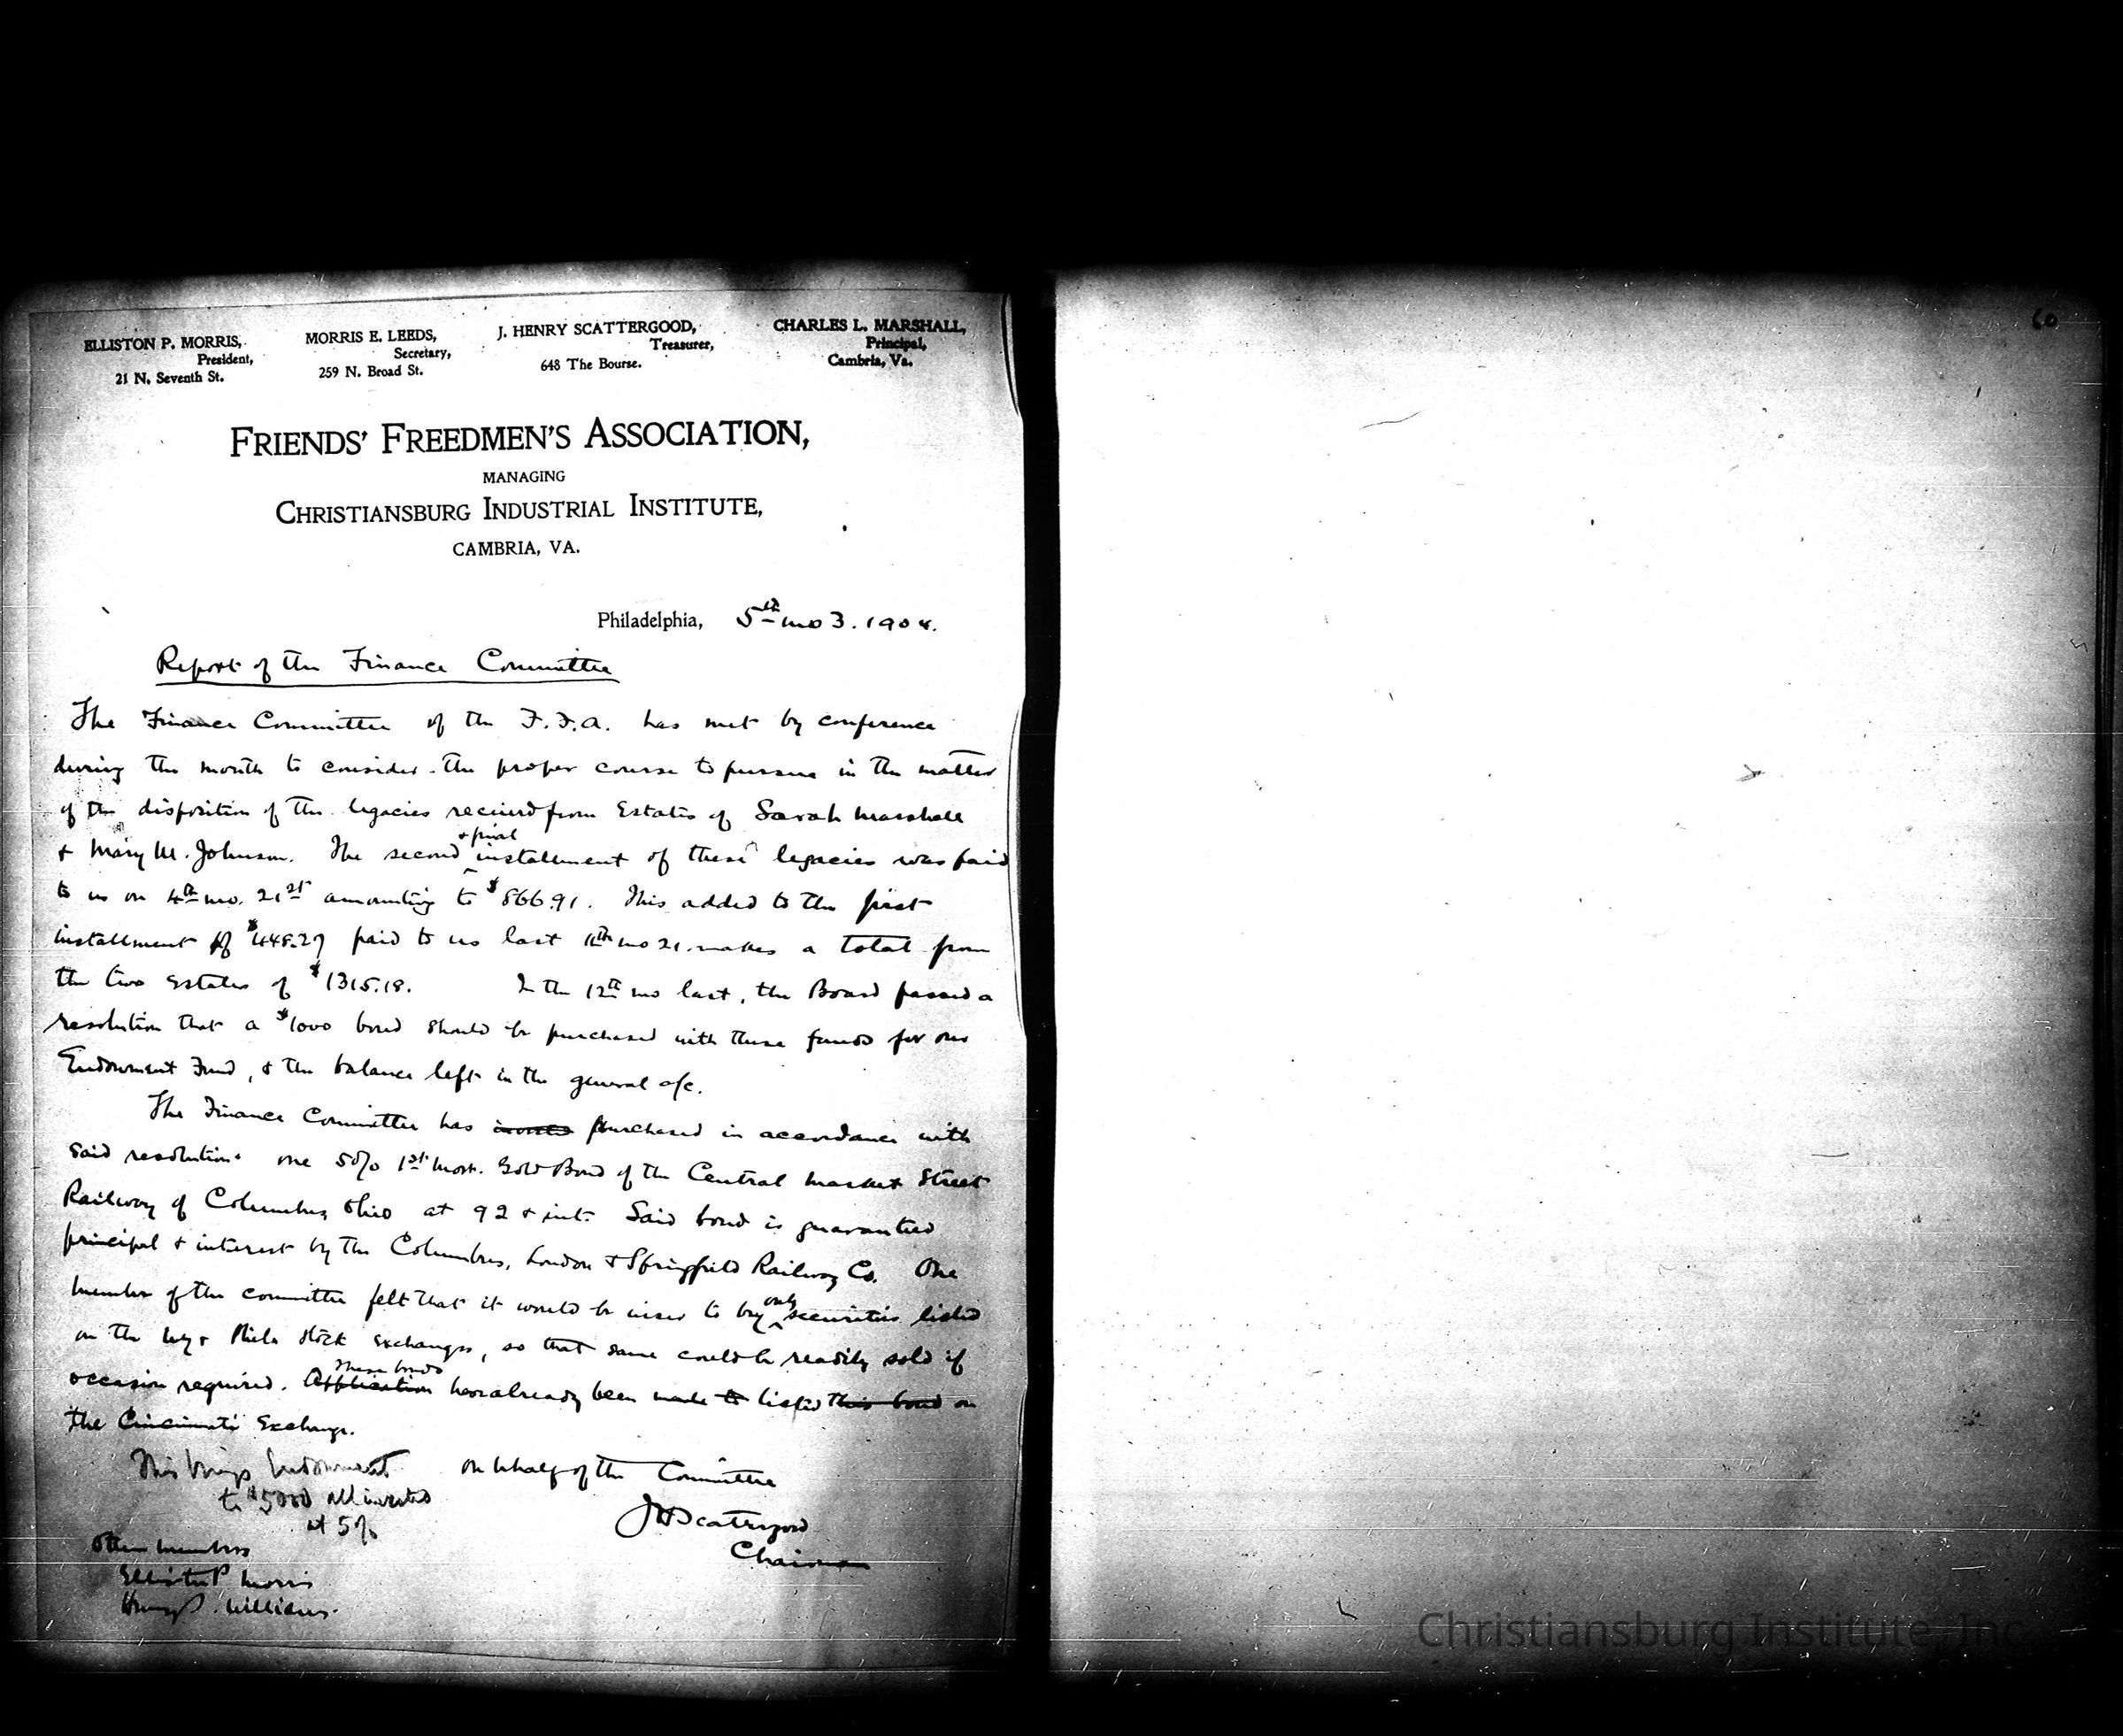 ELLISTON P. MORRIS,
President,
21 N. Seventh St.
MORRIS E. LEEDS,
Secretary,
259 N. Broad St.
J. HENRY SCATTERGOOD,
Treasurer,
648 The Bourse.
CHARLES L. MARSHALL,
Principal,
Cambria, Va.
60
FRIENDS' FREEDMEN'S ASSOCIATION,
MANAGING
CHRISTIANSBURG INDUSTRIAL INSTITUTE,
CAMBRIA, VA.
Philadelphia, 5th mo 3. 1904.
Report of the Finance Committee
The Finance Committee of the F.F.A. has met by conference
during the month to consider the proper course to pursue in the matter
of the disposition of the legacies received from Estates of Sarah Marshall
+ Mary M. Johnson. The second + final installment of these legacies was paid
to us on 4th mo. 21st amounting to $866.91. This added to the first
installment of $448.27 paid to us last 11th mo 21. makes a total from
the two Estates of $1315.18. In the 12th mo last, the Board passed a
resolution that a $1000 bond should be purchased with these funds for our
Endowment Fund, & the balance left in the general a/c.
The Finance Committee has purchased in accordance with
said resolution one 5% 1st Mort. Gold Bond of the Central Market Street
Railway of Columbus, Ohio at 92 + int. Said bond is guaranteed
principal + interest by the Columbus, London & Springfield Railway Co. One
member of the committee felt that it would be wiser to buy only securities listed
on the NY + Phila Stock Exchanges, so that same could be readily sold if
occasion required. Application These bonds have already been made to listed this bond on
the Cincinnati Exchange.
This brings Endowment
to $5000 all invested
at 5%
On behalf of the Committee
JH Scattergood
Chairman
Other members
Elliston P Morris
Williams.
Christiansburg Institute, Inc